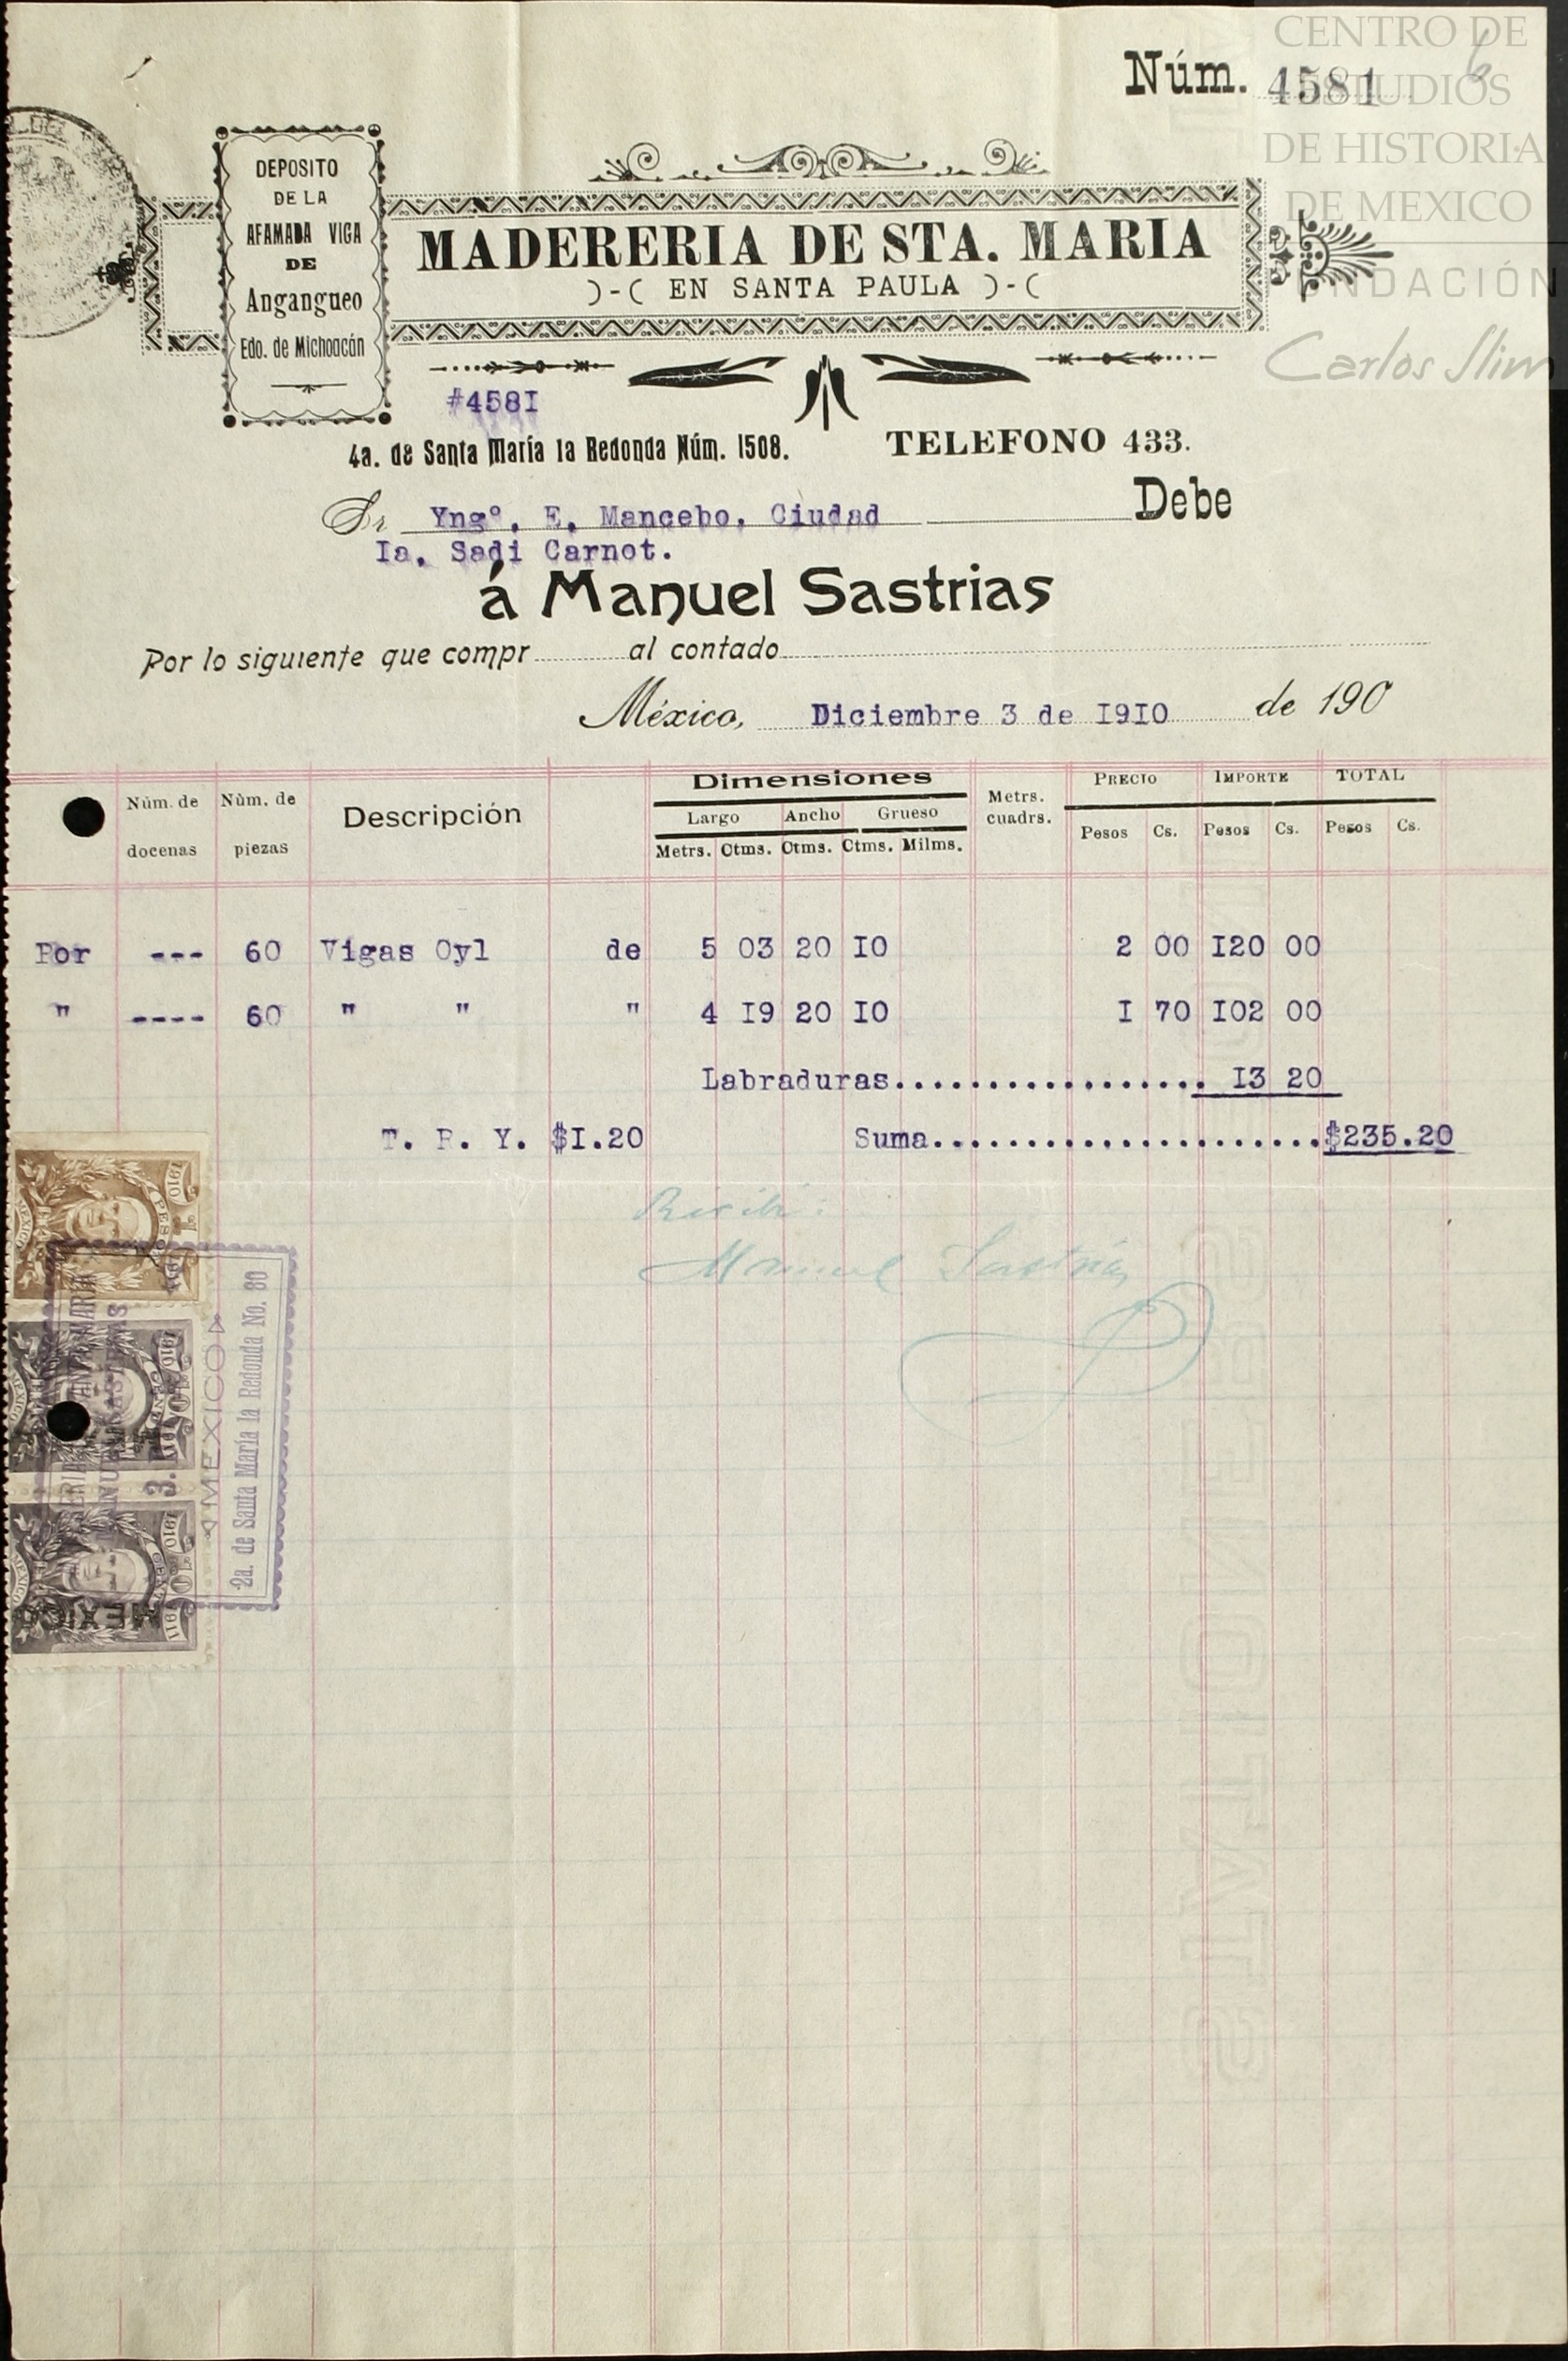 CENTRO DE
ESTUDIOS
DE HISTORIA
DE MEXICO
FUNDACIÓN
Carlos Slim
6
Núm. 4581
DEPOSITO
DE LA
AFAMADA VIGA
DE
Angangueo
Edo. de Michoacán
MADERERIA DE STA. MARIA
)-( EN SANTA PAULA )-(
#458I
4a. de Santa María la Redonda Núm. 1508. TELEFONO 433.
Sr Yngº. E. Mancebo. Ciudad Debe
Ia. Sadi Carnot.
á Manuel Sastrias
Por lo siguiente que compr al contado
México, Diciembre 3 de I9I0 de 190
Núm. de docenas Núm. de piezas Descripción Dimensiones Metrs. cuadrs. PRECIO IMPORTE TOTAL
Largo Ancho Grueso
Metrs. Ctms. Ctms. Ctms. Milms. Pesos Cs. Pesos Cs. Pesos Cs.
Por --- 60 Vigas Oyl de 5 03 20 I0 2 00 I20 00
" ---- 60 " " " 4 I9 20 I0 I 70 I02 00
Labraduras.................. I3 20
T. P. Y. $I.20 Suma.....................$235.20
Recibí:
Manuel Sastrias
MEXICO
2a. de Santa María la Redonda No. 80
MEXICO